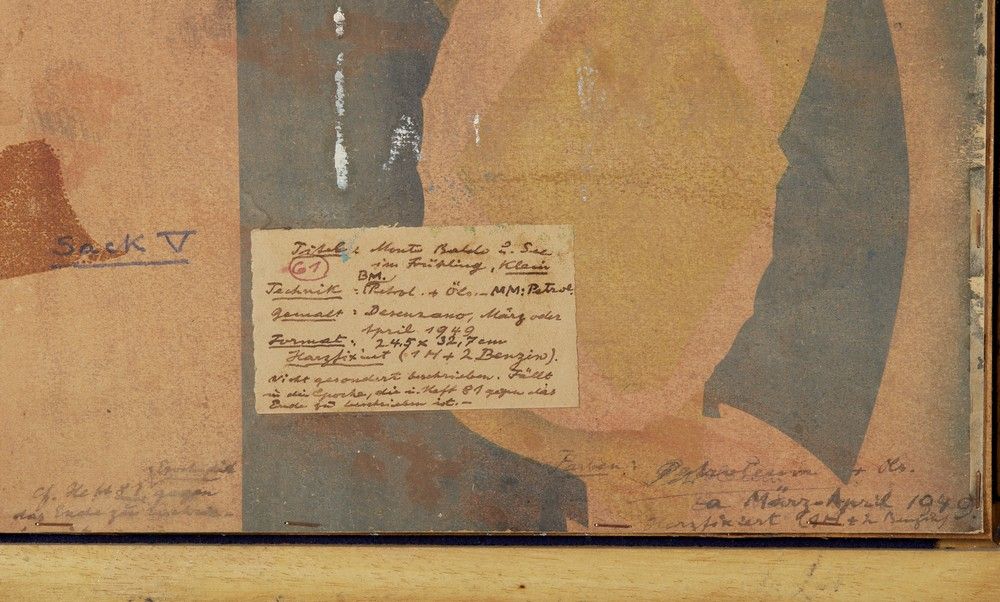 Sack V
Titel: Monte Baldo u. See
61 im Frühling, Klein
BM.
Technik: Petrol. + Öls.- MM: Petrol.
gemalt: Desenzano, März oder
April 1949
Format: 24,5 x 32,7 cm
Harzfixiert (1 H + 2 Benzin).
Nicht gesondert beschrieben. Fällt
in die Epoche, die i. Heft 81 gegen das
Ende zu beschrieben ist.-
Cf. Heft 81 gegen
das Ende zu
Farben: Petroleum + Öls.
März-April 1949
Harzfixiert (1H + 2 Benzin)